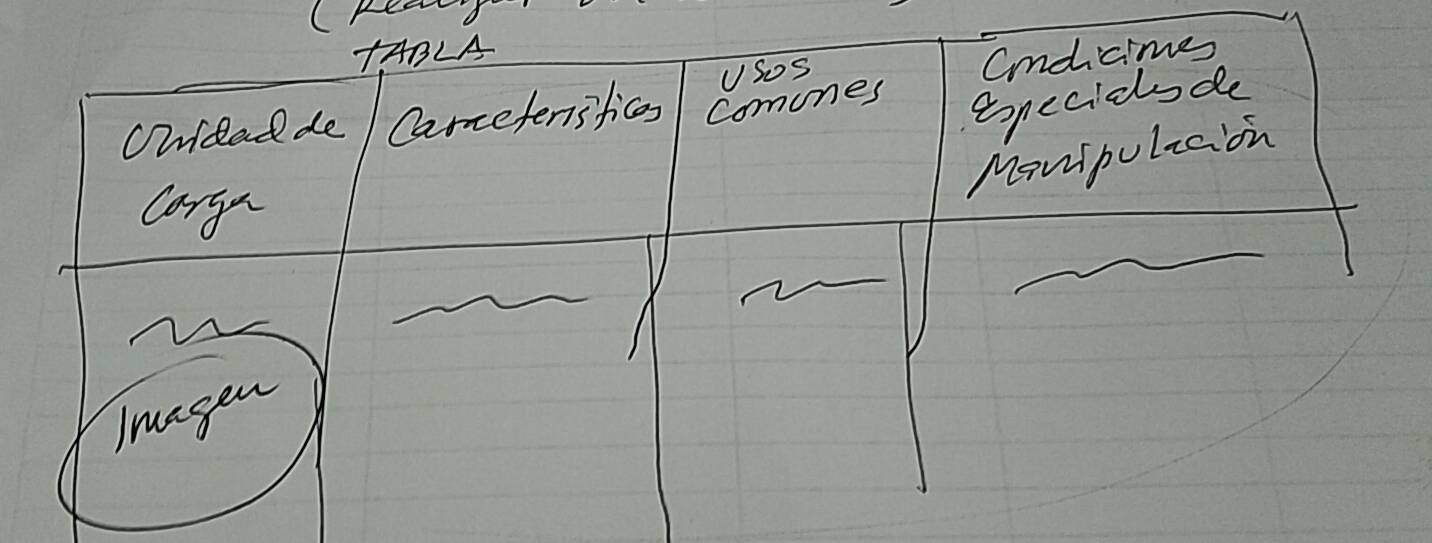 (Realizar
TABLA
Unidad de
Carga
Características
Usos
Comunes
Condiciones
Especiales de
Manipulación
Imagen